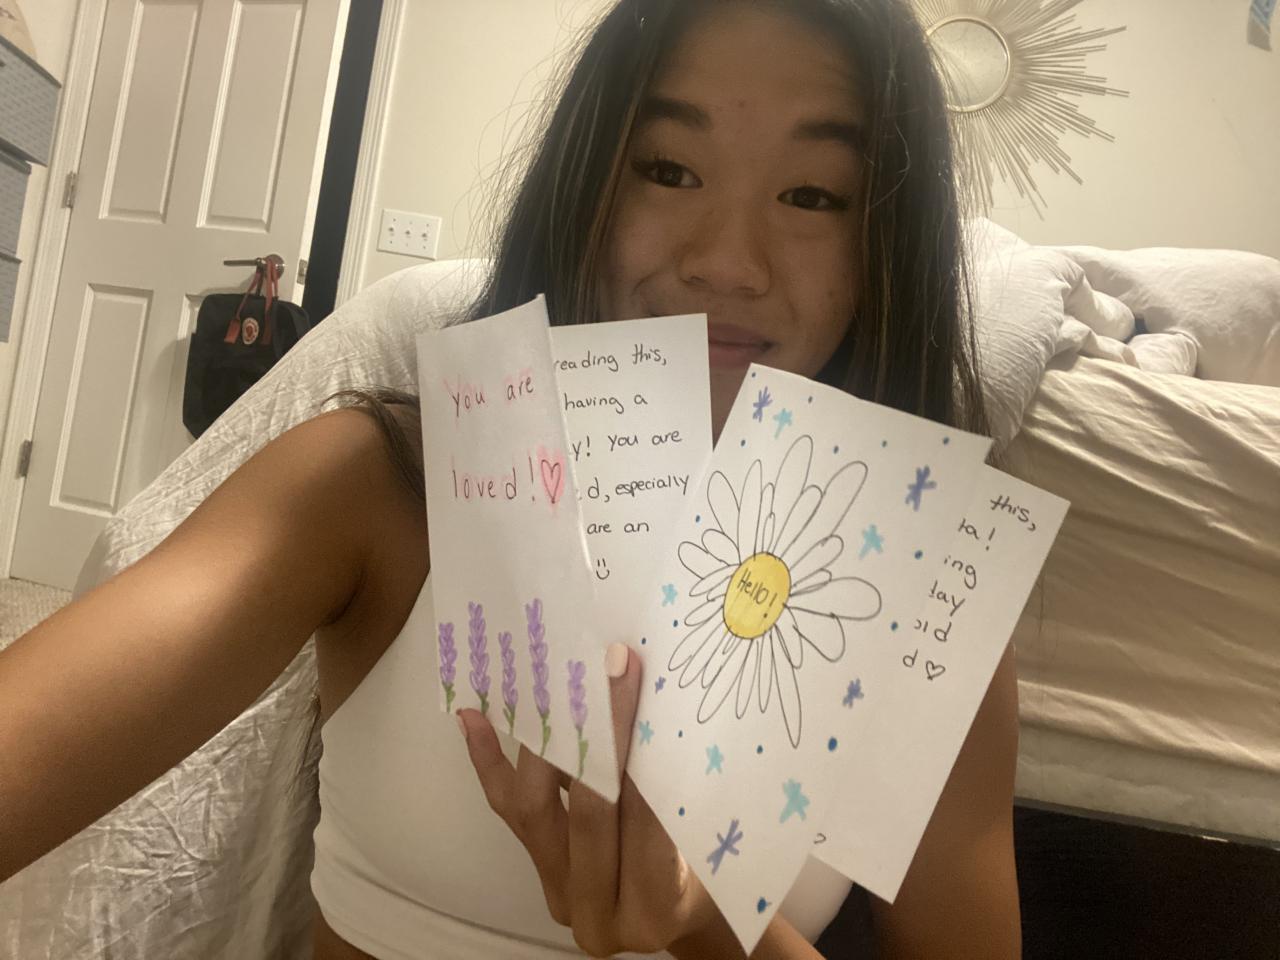 You are
loved!
reading this,
having a
y! You are
d, especially
are an
Hello!
this,
ta!
ing
lay
d